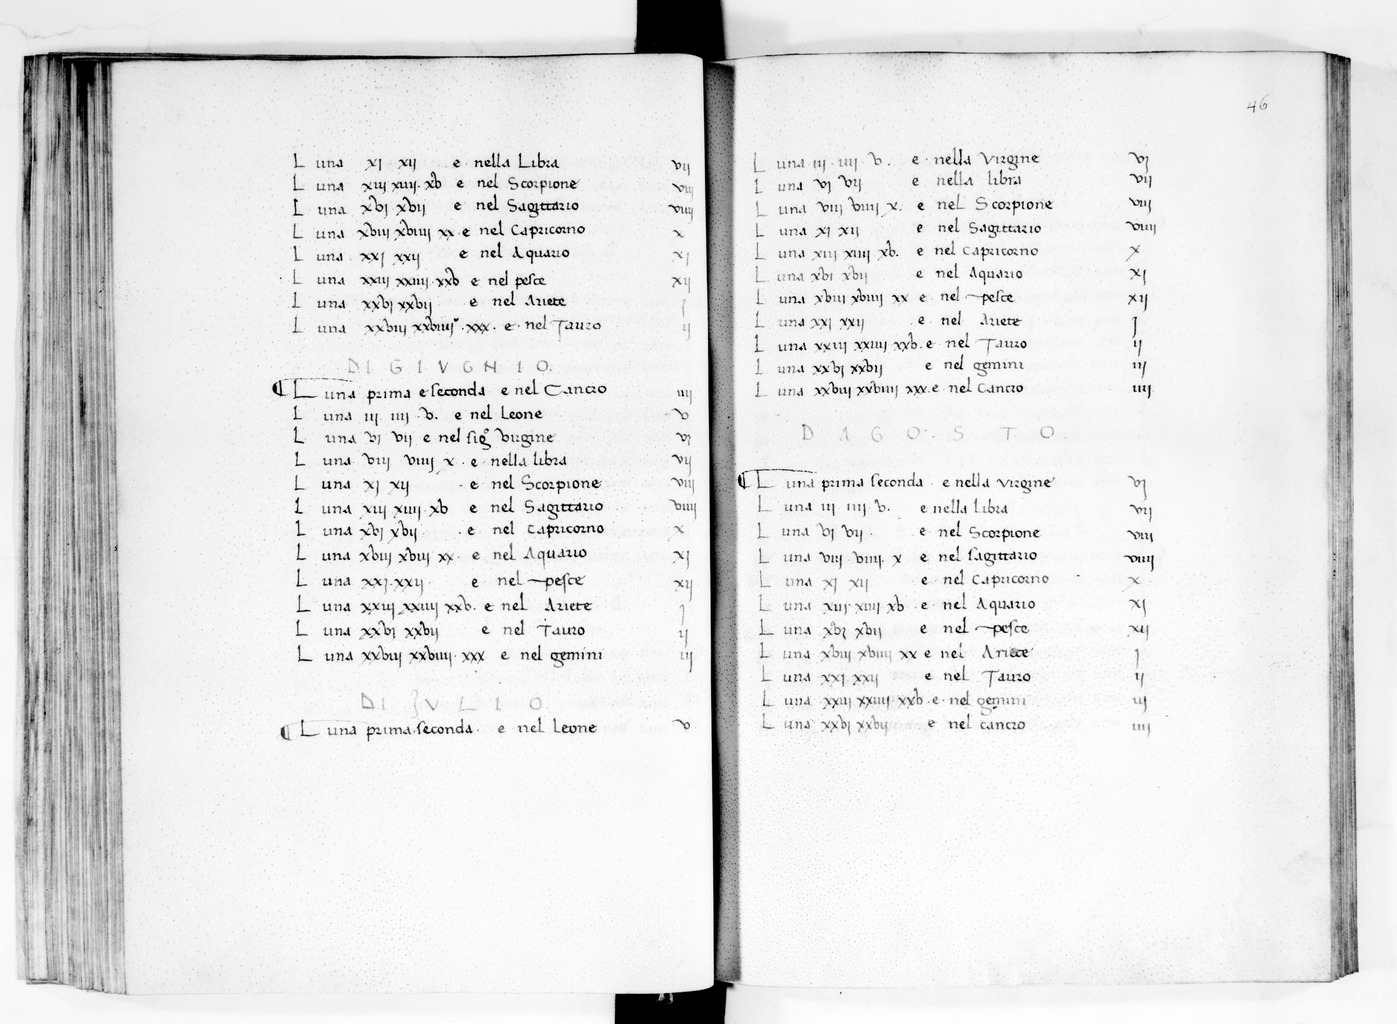 Luna xj xij e nella Libra vij
Luna xiij xiiij. xb e nel Scorpione viij
Luna xbj xbij e nel Sagittario viiij
Luna xbiij xbiiij xx e nel Capricorno x
Luna xxj xxij e nel Aquario xj
Luna xxiij xxiiij. xxb e nel pesce xij
Luna xxbj xxbij e nel Ariete j
Luna xxbiij xxbiiij. xxx. e nel Tauro ij
DI GIVGNIO.
Luna prima e seconda e nel Cancro iiij
Luna iij. iiij. v. e nel Leone v
Luna vj vij e nel sigº Virgine vj
Luna viij viiij x. e nella libra vij
Luna xj xij . e nel Scorpione viij
Luna xiij xiiij. xb e nel Sagittario viiij
Luna xbj xbij . e nel Capricorno x
Luna xbiij xbiiij xx. e nel Aquario xj
Luna xxj. xxij e nel pesce xij
Luna xxiij xxiiij xxb. e nel Ariete j
Luna xxbj xxbij e nel Tauro ij
Luna xxbiij xxbiiij. xxx e nel gemini iij
DI JVLIO.
Luna prima. seconda. e nel Leone v
46
Luna iij. iiij. v. e nella Virgine vj
Luna vj vij e nella libra vij
Luna viij viiij x. e nel Scorpione viij
Luna xj xij e nel Sagittario viiij
Luna xiij xiiij xb. e nel Capricorno x
Luna xbj xbij e nel Aquario xj
Luna xbiij xbiiij xx e nel pesce xij
Luna xxj xxij . e nel Ariete j
Luna xxiij xxiiij xxb. e nel Tauro ij
Luna xxbj xxbij e nel gemini iij
Luna xxbiij xxbiiij xxx. e nel Cancro iiij
DAGOSTO
Luna prima seconda . e nella Virgine vj
Luna iij iiij v. e nella libra vij
Luna vj vij . e nel Scorpione viij
Luna viij viiij. x e nel sagittario viiij
Luna xj xij e nel Capricorno x
Luna xiij. xiiij xb e nel Aquario xj
Luna xbj xbij e nel pesce xij
Luna xbiij xbiiij xx e nel Ariete j
Luna xxj xxij e nel Tauro ij
Luna xxiij xxiiij xxb. e nel gemini iij
Luna xxbj xxbij e nel cancro iiij